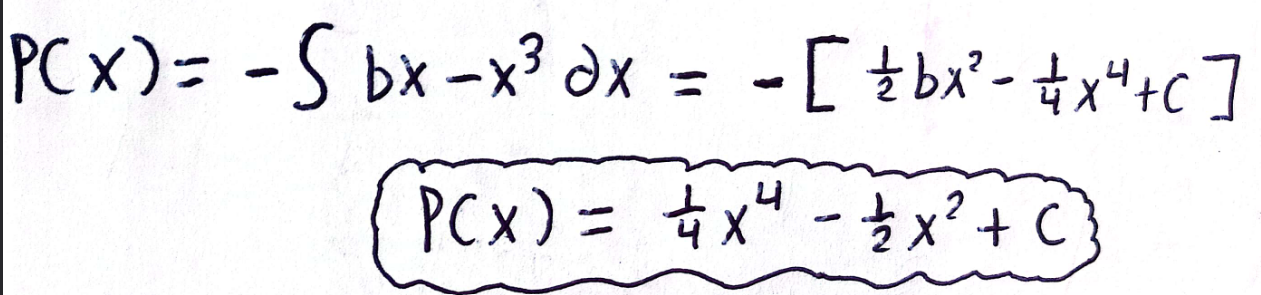 P(x) = -∫ bx - x³ ∂x = -[ ½bx² - ¼x⁴ + C ]
P(x) = ¼x⁴ - ½x² + C